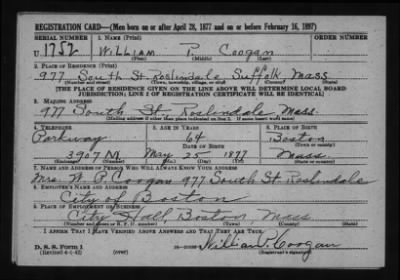 REGISTRATION CARD—(Men born on or after April 28, 1877 and on or before February 16, 1897)
SERIAL NUMBER 1. NAME (Print) ORDER NUMBER
U 1752 WILLIAM P. COOGAN
(First) (Middle) (Last)
2. PLACE OF RESIDENCE (Print)
977 South St Roslindale Suffolk Mass
(Number and street) (Town, township, village, or city) (County) (State)
[THE PLACE OF RESIDENCE GIVEN ON THE LINE ABOVE WILL DETERMINE LOCAL BOARD
JURISDICTION; LINE 2 OF REGISTRATION CERTIFICATE WILL BE IDENTICAL]
3. MAILING ADDRESS
977 South St. Roslindale Mass.
[Mailing address if other than place indicated on line 2. If same insert word same]
4. TELEPHONE 5. AGE IN YEARS 6. PLACE OF BIRTH
Parkway 64 Boston
DATE OF BIRTH (Town or county)
3907 M May 25 1877 Mass.
(Exchange) (Number) (Mo.) (Day) (Yr.) (State or country)
7. NAME AND ADDRESS OF PERSON WHO WILL ALWAYS KNOW YOUR ADDRESS
Mrs. W. P. Coogan 977 South St. Roslindale
8. EMPLOYER'S NAME AND ADDRESS
City of Boston
9. PLACE OF EMPLOYMENT OR BUSINESS
City Hall, Boston, Mass.
(Number and street or R. F. D. number) (Town) (County) (State)
I AFFIRM THAT I HAVE VERIFIED ABOVE ANSWERS AND THAT THEY ARE TRUE.
D. S. S. Form 1
(Revised 4-1-42) William P. Coogan